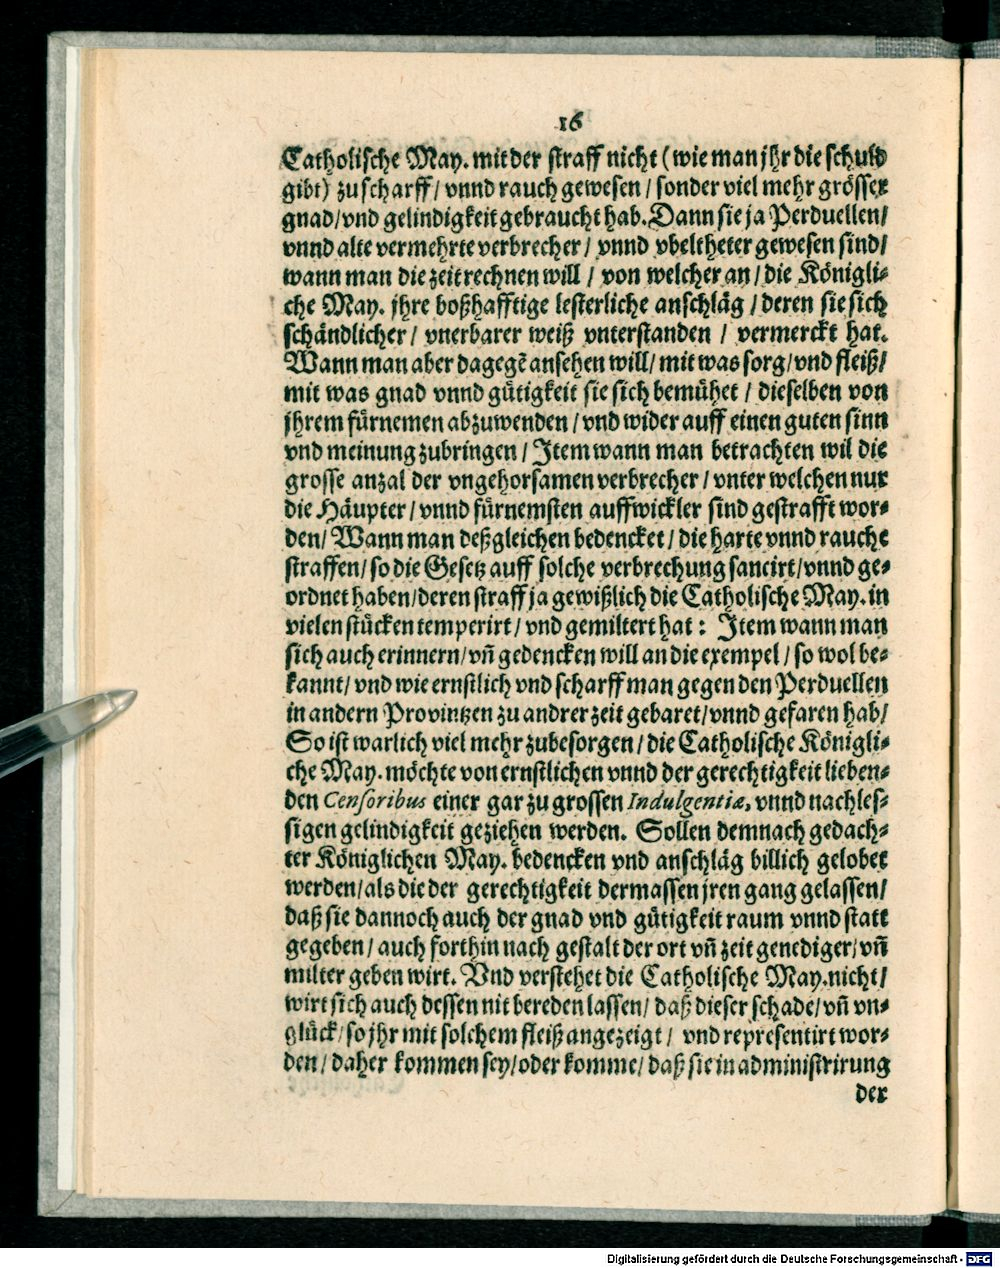 16
Catholische May. mit der straff nicht (wie man jhr die schuld
gibt) zu scharff/ vnnd rauch gewesen/ sonder viel mehr grösser
gnad/ vnd gelindigkeit gebraucht hab. Dann sie ja Perduellen/
vnnd alte vermehrte verbrecher/ vnnd vbeltheter gewesen sind/
wann man die zeit rechnen will/ von welcher an/ die Königli-
che May. jhre boßhafftige lesterliche anschläg/ deren sie sich
schändlicher/ vnerbarer weiß vnterstanden/ vermerckt hat.
Wann man aber dagegẽ ansehen will/ mit was sorg/ vnd fleiß/
mit was gnad vnnd gütigkeit sie sich bemühet/ dieselben von
jhrem fürnemen abzuwenden/ vnd wider auff einen guten sinn
vnd meinung zubringen/ Item wann man betrachten wil die
grosse anzal der vngehorsamen verbrecher/ vnter welchen nur
die Häupter/ vnnd fürnemsten auffwickler sind gestrafft wor-
den/ Wann man deßgleichen bedencket/ die harte vnnd rauche
straffen/ so die Gesetz auff solche verbrechung sancirt/ vnnd ge-
ordnet haben/ deren straff ja gewißlich die Catholische May. in
vielen stücken temperirt/ vnd gemiltert hat: Item wann man
sich auch erinnern/ vñ gedencken will an die exempel/ so wol be-
kannt/ vnd wie ernstlich vnd scharff man gegen den Perduellen
in andern Provintzen zu andrer zeit gebaret/ vnnd gefaren hab/
So ist warlich viel mehr zubesorgen/ die Catholische Königli-
che May. möchte von ernstlichen vnnd der gerechtigkeit lieben-
den Censoribus einer gar zu grossen Indulgentiæ, vnnd nachles-
sigen gelindigkeit geziehen werden. Sollen demnach gedach-
ter Königlichen May. bedencken vnd anschläg billich gelobet
werden/ als die der gerechtigkeit dermassen jren gang gelassen/
daß sie dannoch auch der gnad vnd gütigkeit raum vnnd statt
gegeben/ auch forthin nach gestalt der ort vñ zeit genediger/ vñ
milter geben wirt. Vnd verstehet die Catholische May. nicht/
wirt sich auch dessen nit bereden lassen/ daß dieser schade/ vñ vn-
glück/ so jhr mit solchem fleiß angezeigt/ vnd representirt wor-
den/ daher kommen sey/ oder komme/ daß sie in administrirung
der
Digitalisierung gefördert durch die Deutsche Forschungsgemeinschaft - DFG